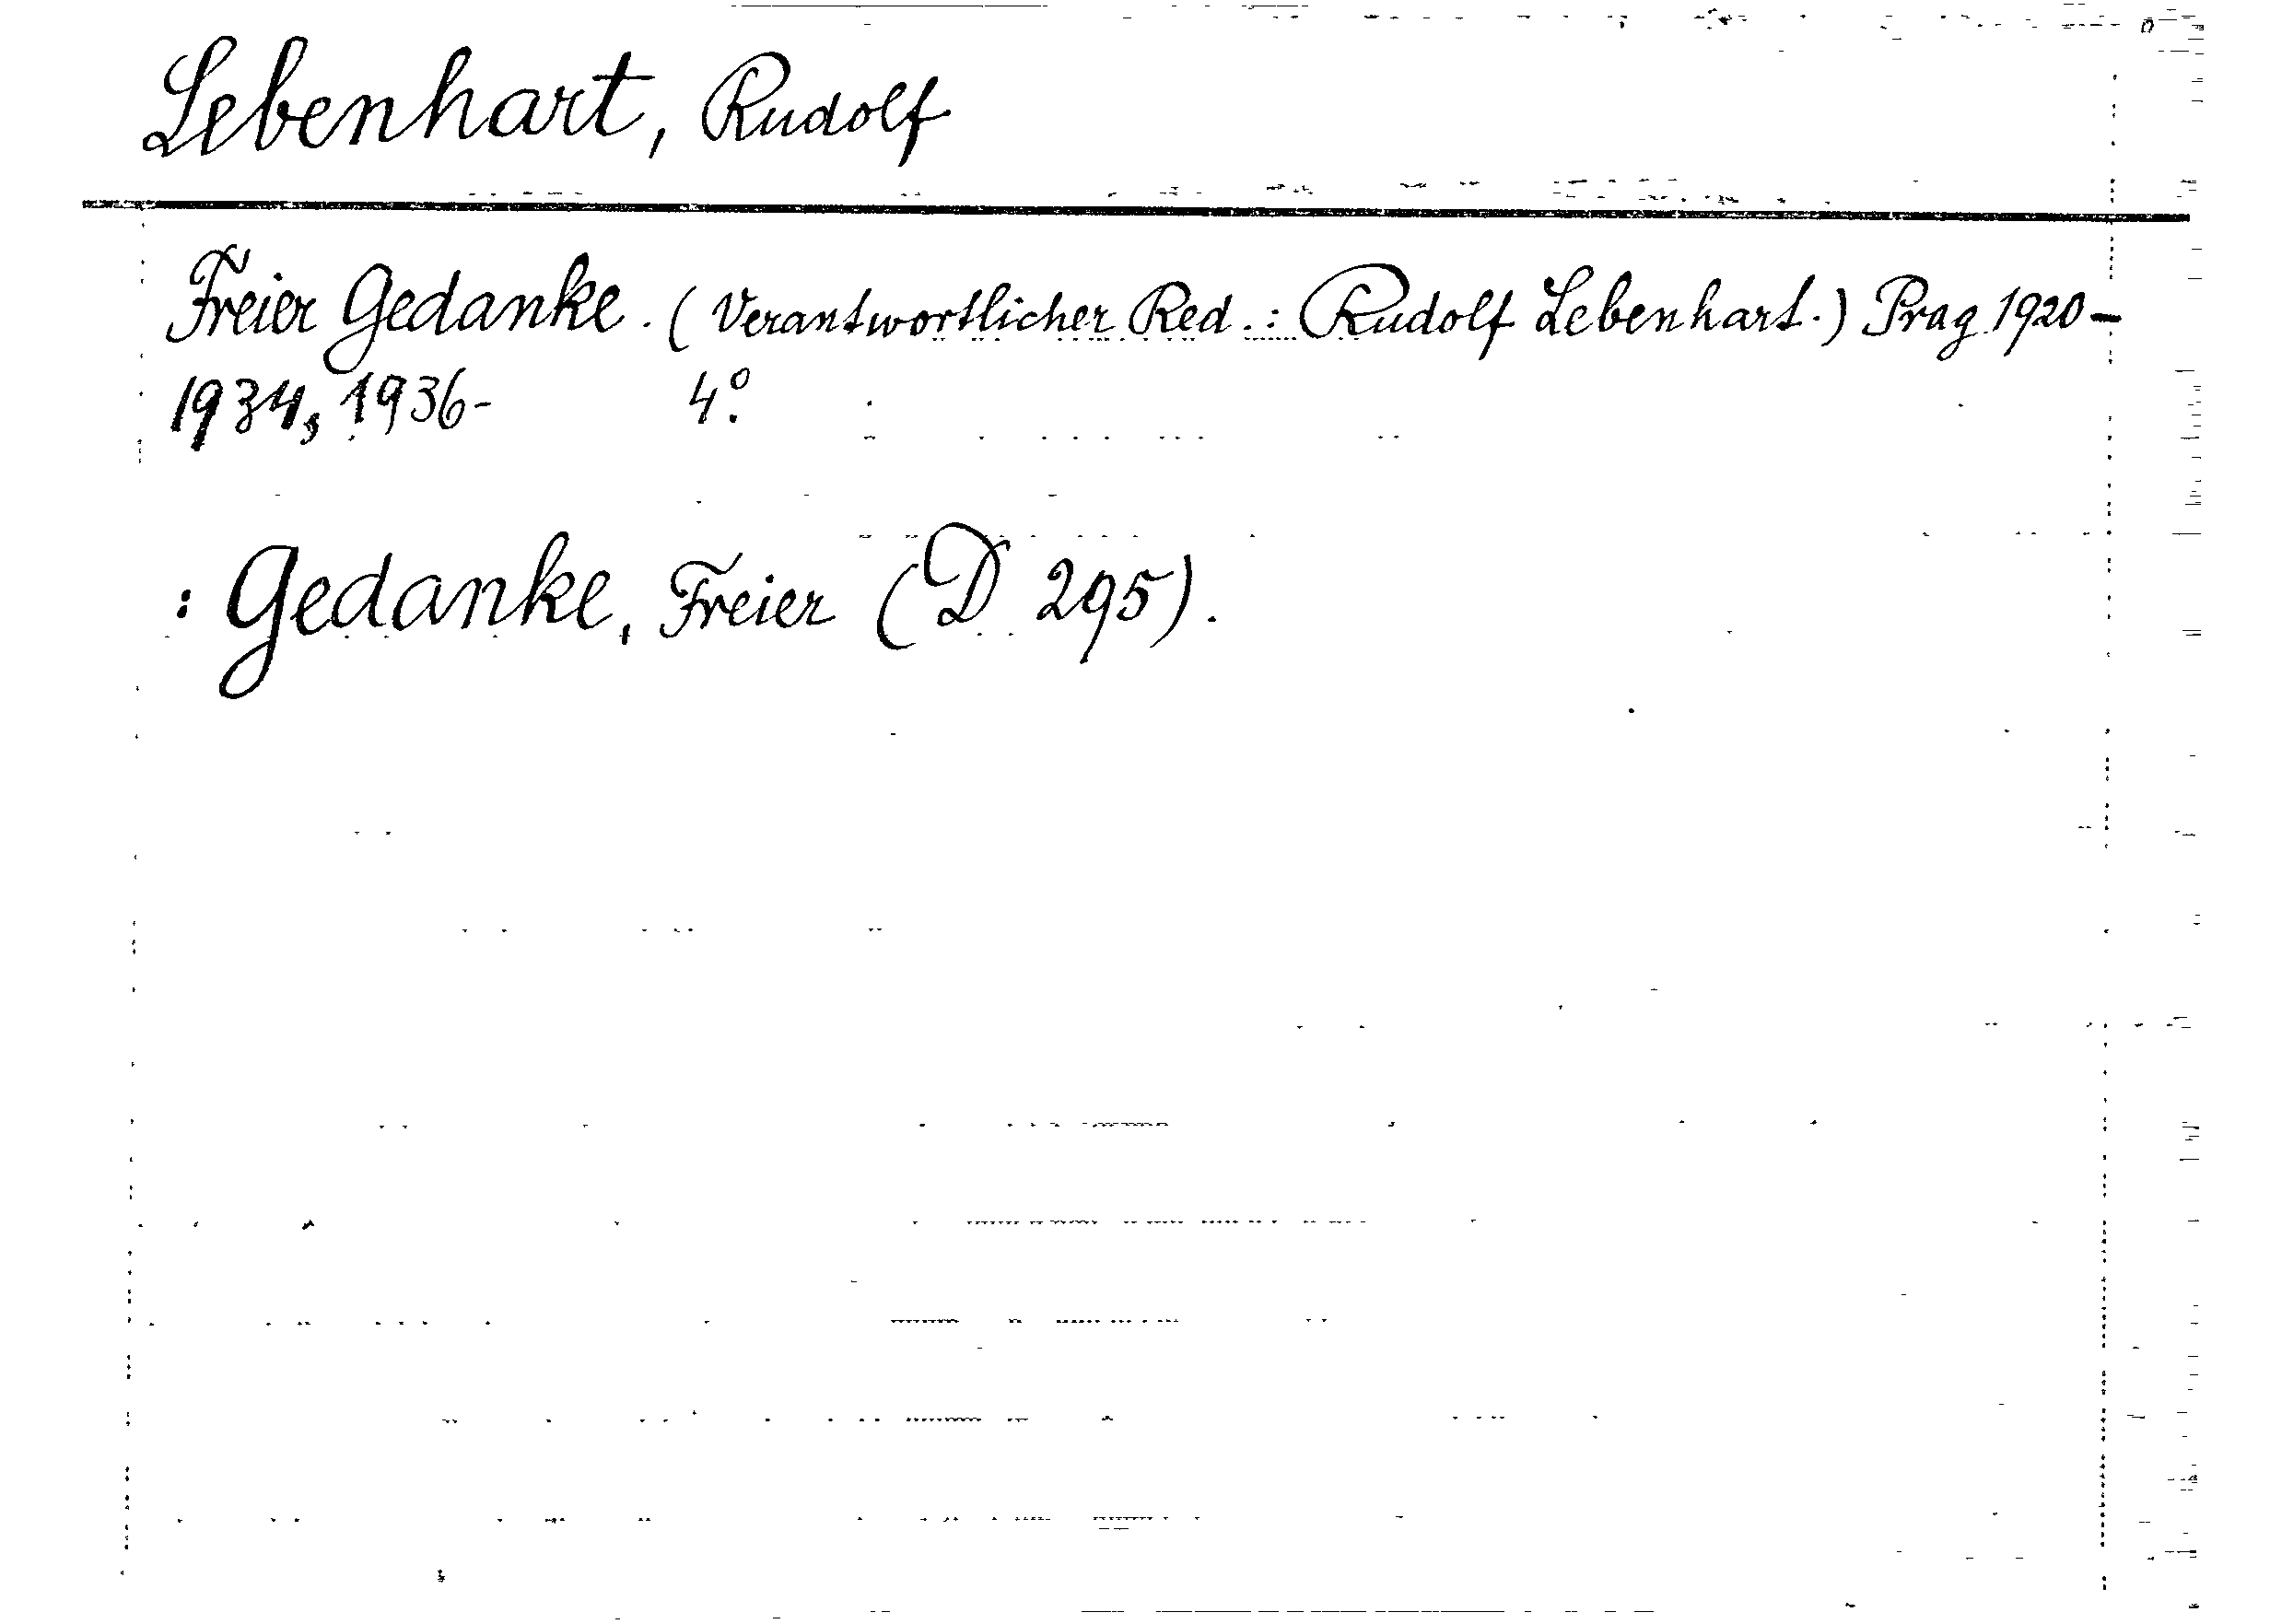 Lebenhart, Rudolf
Freier Gedanke. (Verantwortlicher Red.: Rudolf Lebenhart.) Prag 1920-
1934, 1936- 4°.
: Gedanke, Freier (D 295).